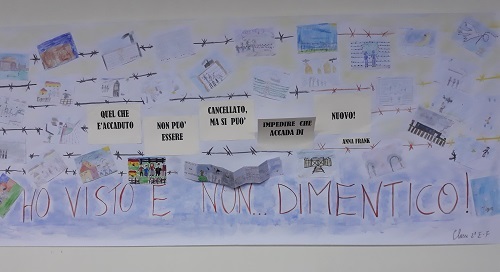 QUEL CHE
E'ACCADUTO
NON PUO'
ESSERE
CANCELLATO,
MA SI PUO'
IMPEDIRE CHE
ACCADA DI
NUOVO!
ANNA FRANK
HO VISTO E NON... DIMENTICO!